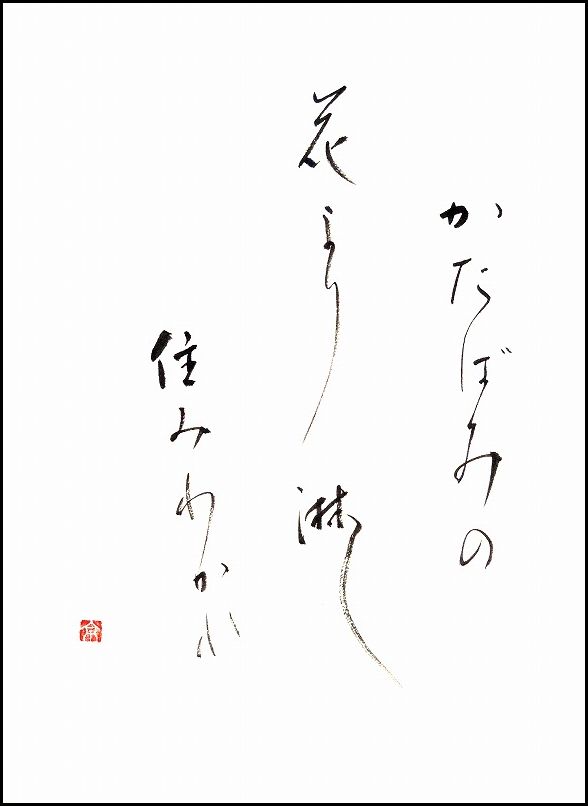 かたばみの
花より淋し
住みわかれ
京